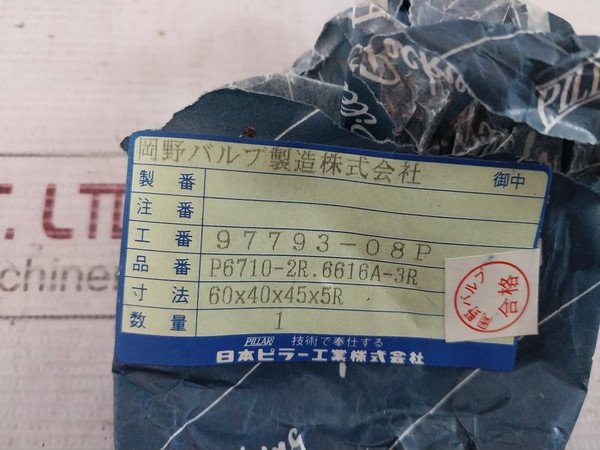 Packing
PILLAR
岡野バルブ製造株式会社 御中
製番
注番
工番 97793-08P
品番 P6710-2R.6616A-3R
寸法 60x40x45x5R
数量 1
合格
PILLAR 技術で奉仕する
日本ピラー工業株式会社
T. LT
achiner